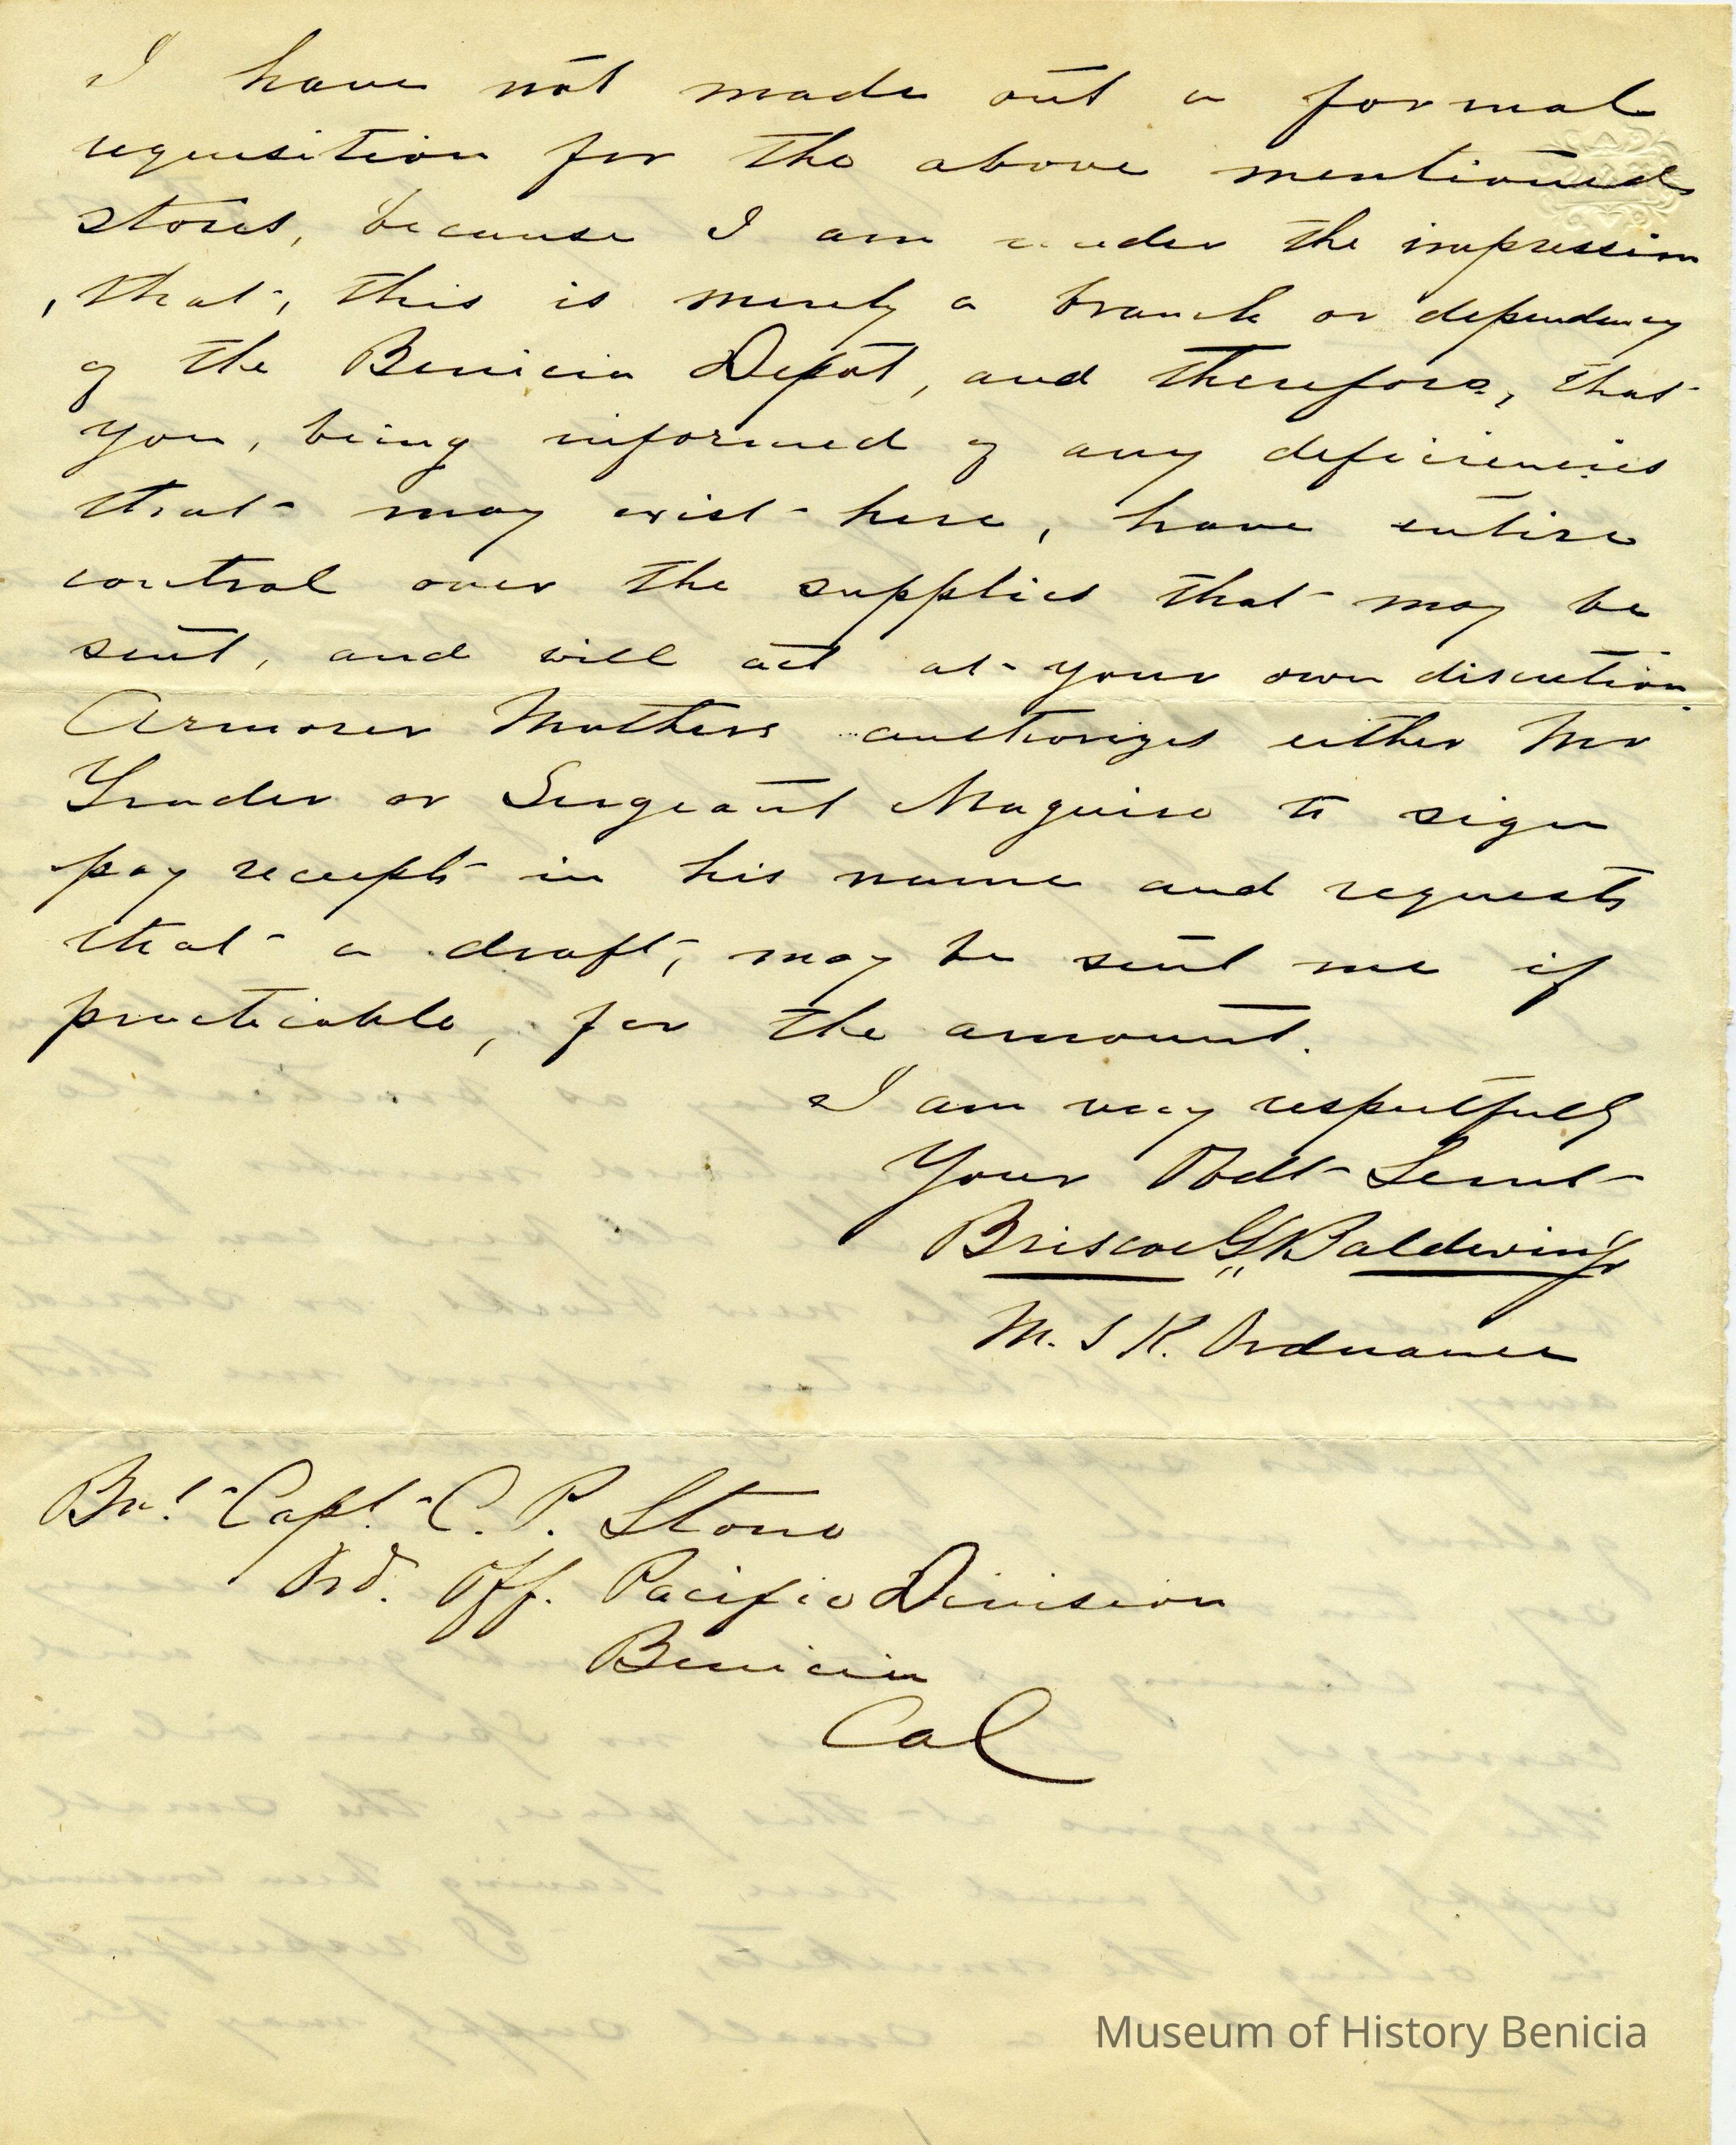 I have not made out a formal
requisition for the above mentioned
stores, because I am under the impression
, that, this is merely a branch or dependency
of the Benicia Depot, and therefore, that
you, being informed of any deficiencies
that may exist here, have entire
control over the supplies that may be
sent, and will act at your own discretion.
Armorer Mathers authorizes either Mr
or Sergeant Maguire to sign
pay receipts in his name and requests
that a draft, may be sent me if
practicable, for the amount.
I am very respectfully
Your Obdt Servt
Briscoe G. Baldwin Jr
M. S K. Ordnance
Bvt. Capt. C. P. Stone
Ord. Off. Pacific Division
Benicia
Cal
Museum of History Benicia